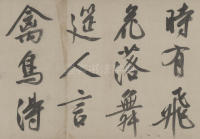 時有飛
花落舞
逕人言
禽鳥得